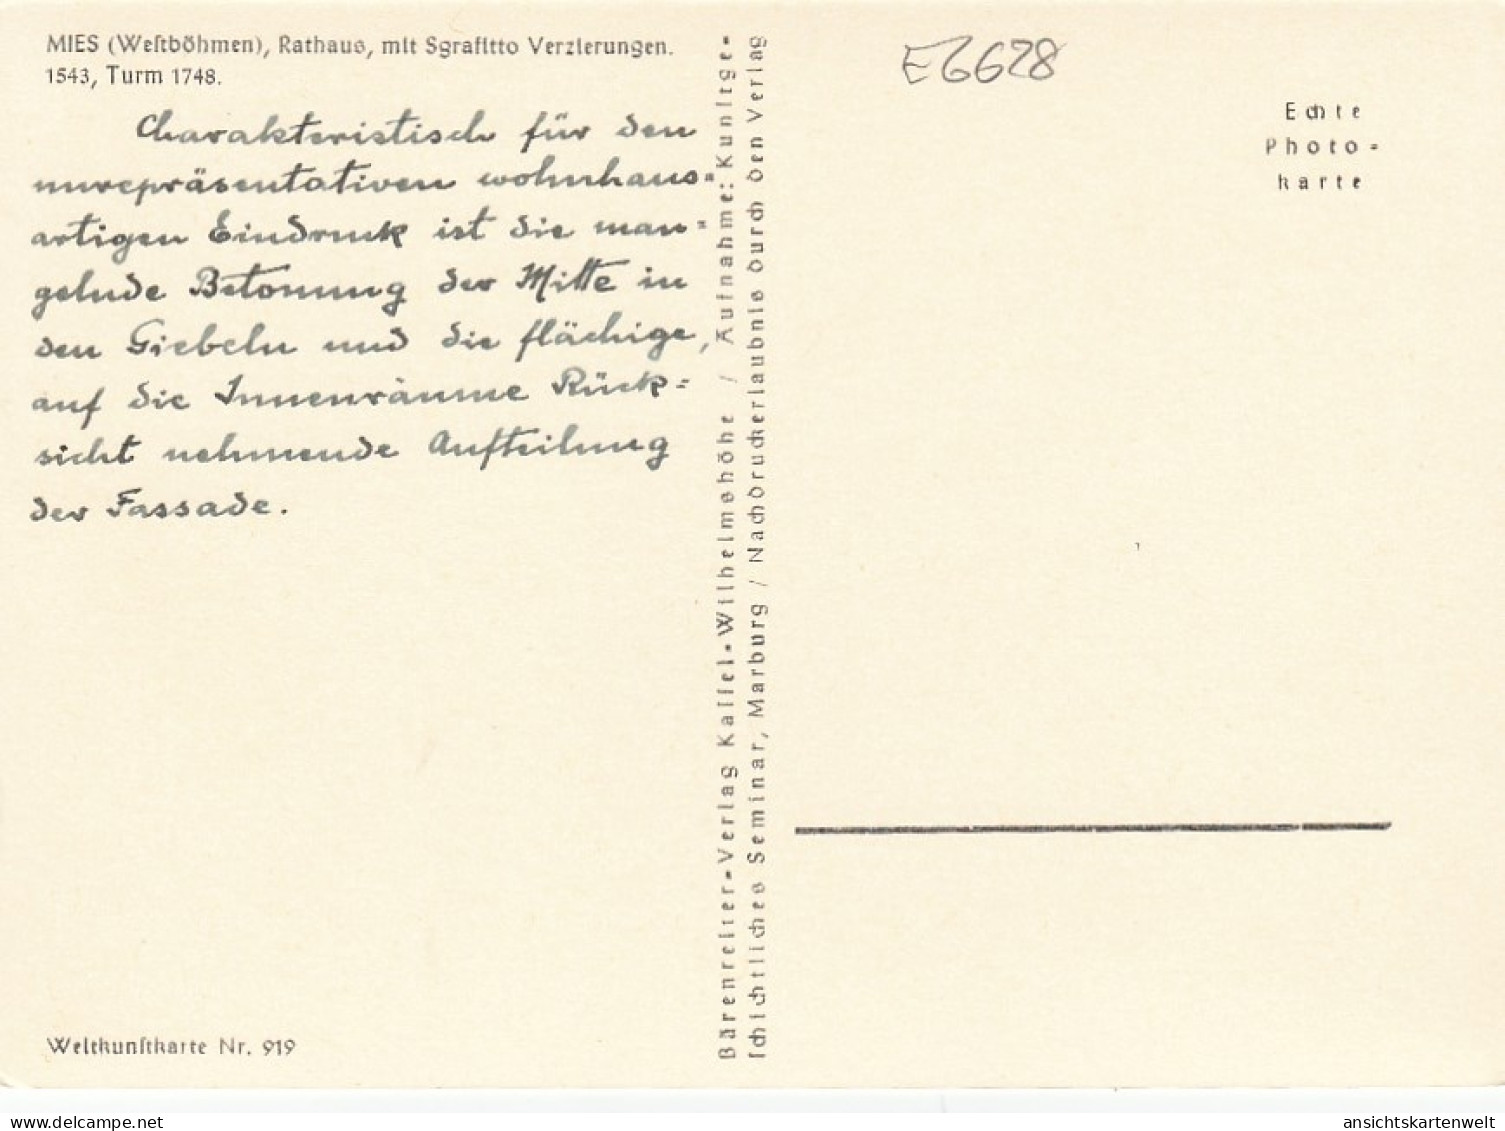 MIES (Weſtböhmen), Rathaus, mit Sgraffitto Verzierungen.
1543, Turm 1748.
Charakteristisch für den
unrepräsentativen wohnhaus=
artigen Eindruck ist die man=
gelnde Betonung der Mitte in
den Giebeln und die flächige,
auf die Innenräume Rück=
sicht nehmende Aufteilung
der Fassade.
Weltkunſtkarte Nr. 919
Bärenreiter-Verlag Kaſſel-Wilhelmshöhe / Aufnahme: Kunſtge-
ſchichtliches Seminar, Marburg / Nachdruckerlaubnis durch den Verlag
E6628
Echte
Photo-
karte
delcampe.net
ansichtskartenwelt